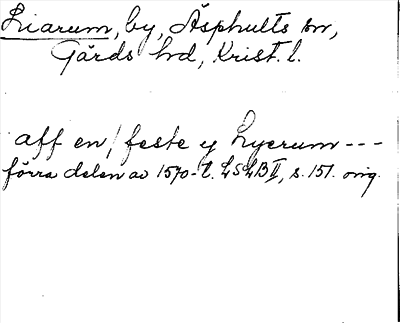 Liarum, by, Äsphults sn,
Gärds hd, Krist. l.
aff en/ feste y Lyerum ---
förra delen av 1570-t. LSLB II, s. 151. orig.